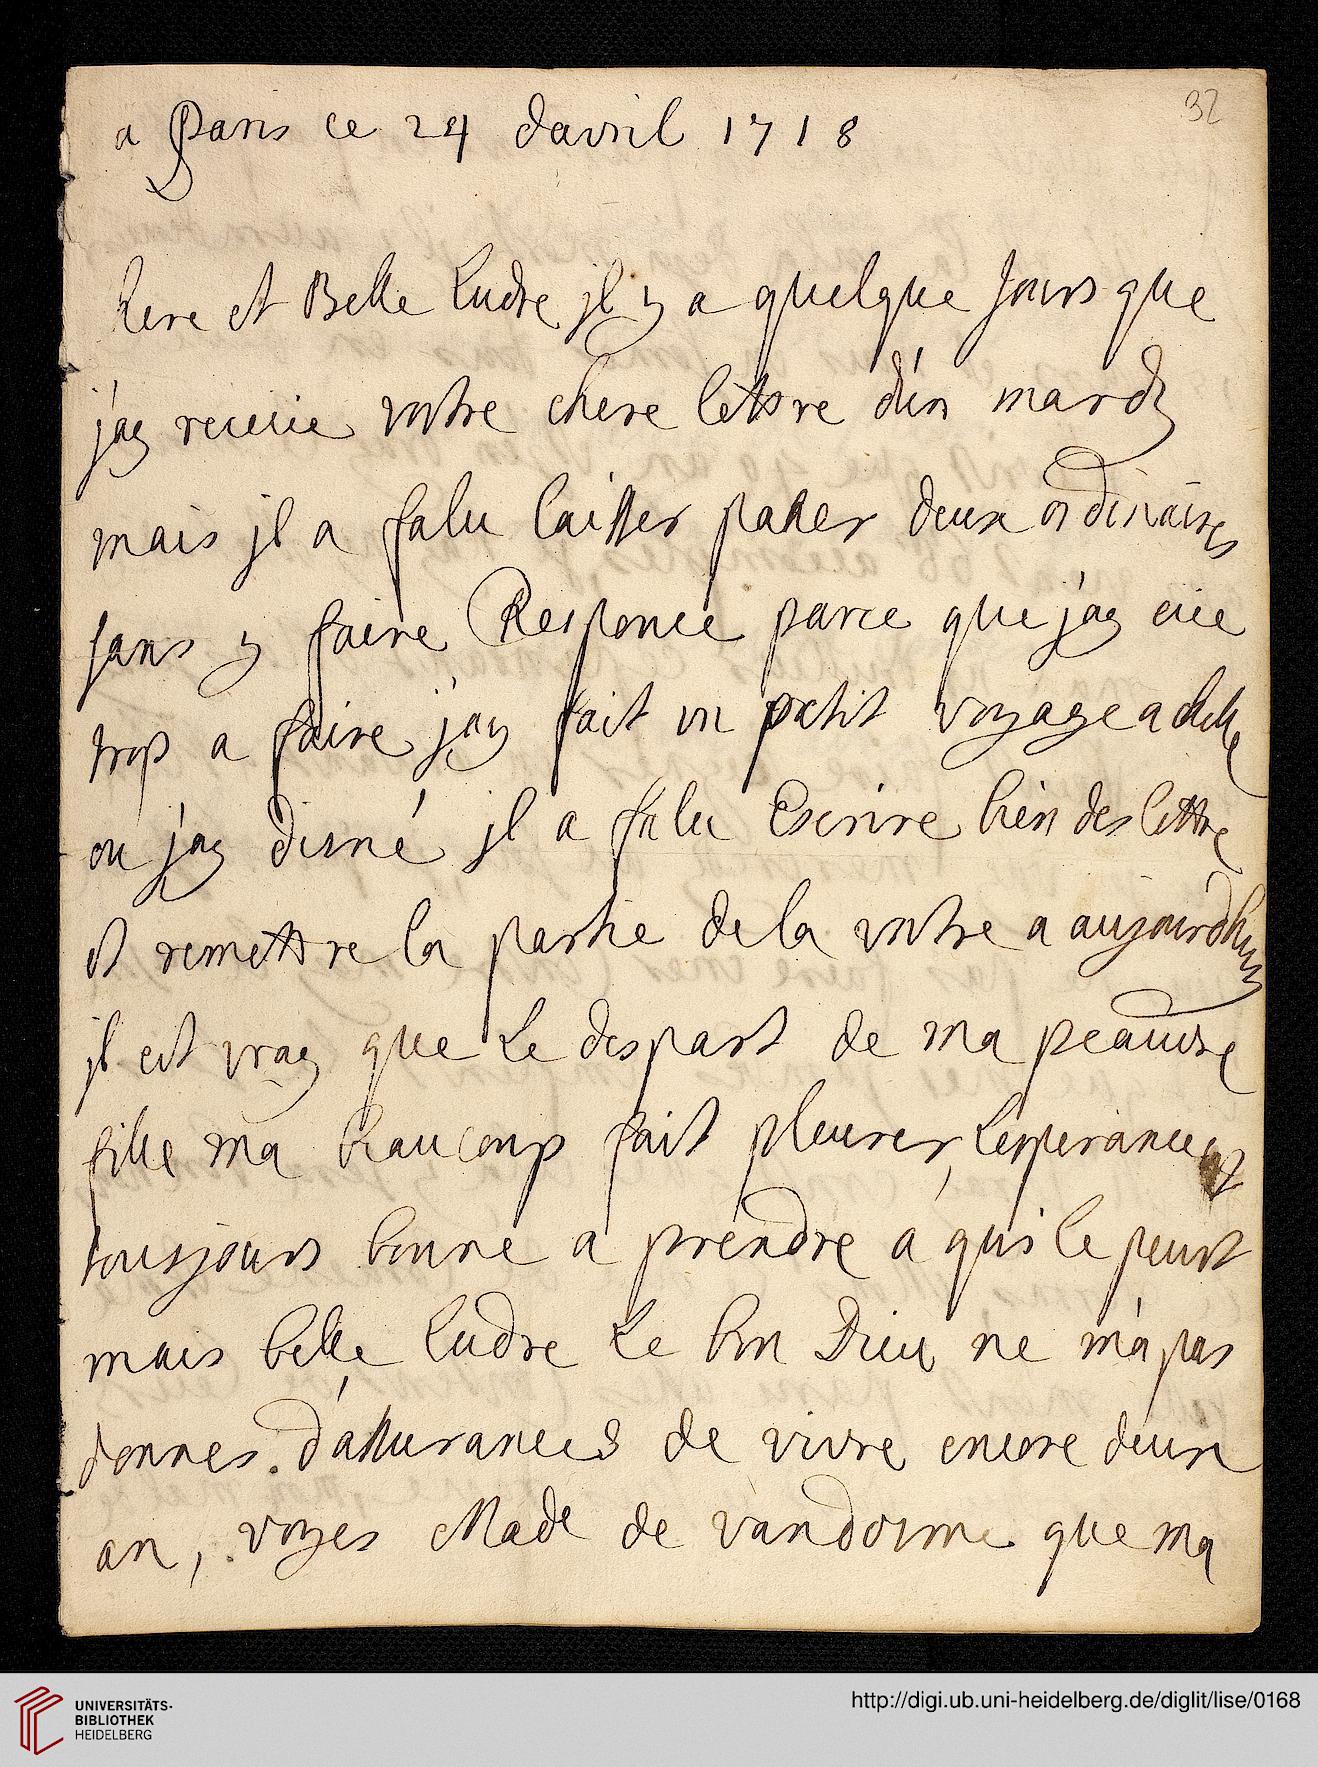 32
a Paris ce 24 davril 1718
here et Belle Ludre jl y a quelque jours que
j'ay receue vostre chere lettre d'un mardy
mais jl a falu laisser passer deux ordinaires
sans y faire Responce parce que j'ay eue
trop a faire j'ay fait un petit voyage a chelle
ou j'ay disné jl a falu Escrire bien des lettre
et remettre la partie de la vostre a aujourdhuy
jl est vray que Le despart de ma peauvre
fille ma beaucoup fait pleurer, Lesperance est
tousjours bonne a prendre a qui le peust
mais belle Ludre Le bon Dieu ne m'a pas
donnes d'assurances de vivre encore deux
an, voyes Made de vandosme que ma
UNIVERSITÄTS-
BIBLIOTHEK
HEIDELBERG
http://digi.ub.uni-heidelberg.de/diglit/lise/0168